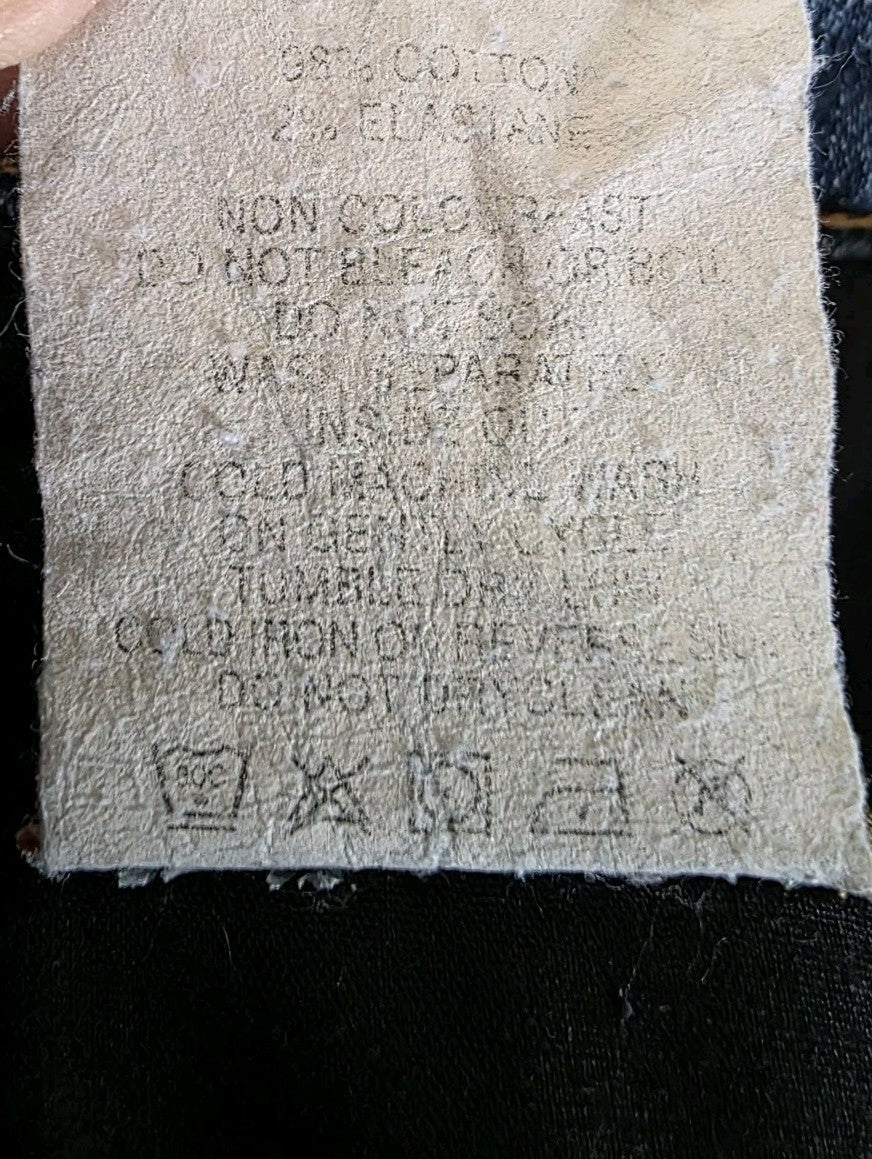 98% COTTON
2% ELASTANE
NON COLOURFAST
DO NOT BLEACH OR BOIL
DO NOT SOAK
WASH SEPARATELY
INSIDE OUT
COLD MACHINE WASH
ON GENTLY CYCLE
TUMBLE DRY LOW
COLD IRON ON REVERSE
DO NOT DRYCLEAN